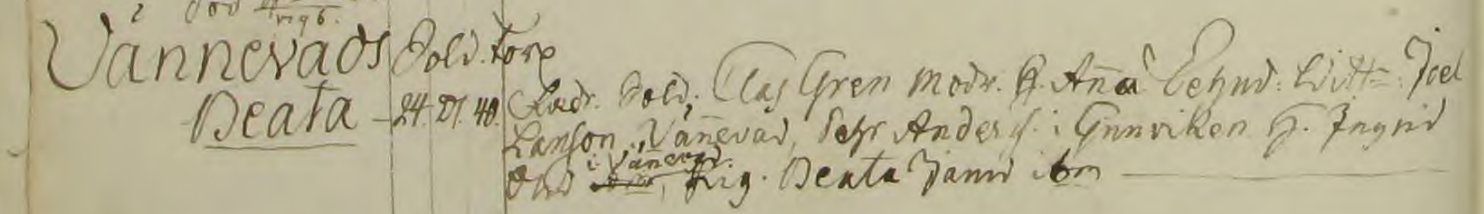 Vännevads Sold. Torp
Beata 24. 27. 40. Fadr. Sold. Clas Gren Modr. H. Anna Witt: Joel
Lanson, Vänevad, Pehr Anders S. i Gunviken H. Ingrid
i Vänevad. Pig. Beata ibm